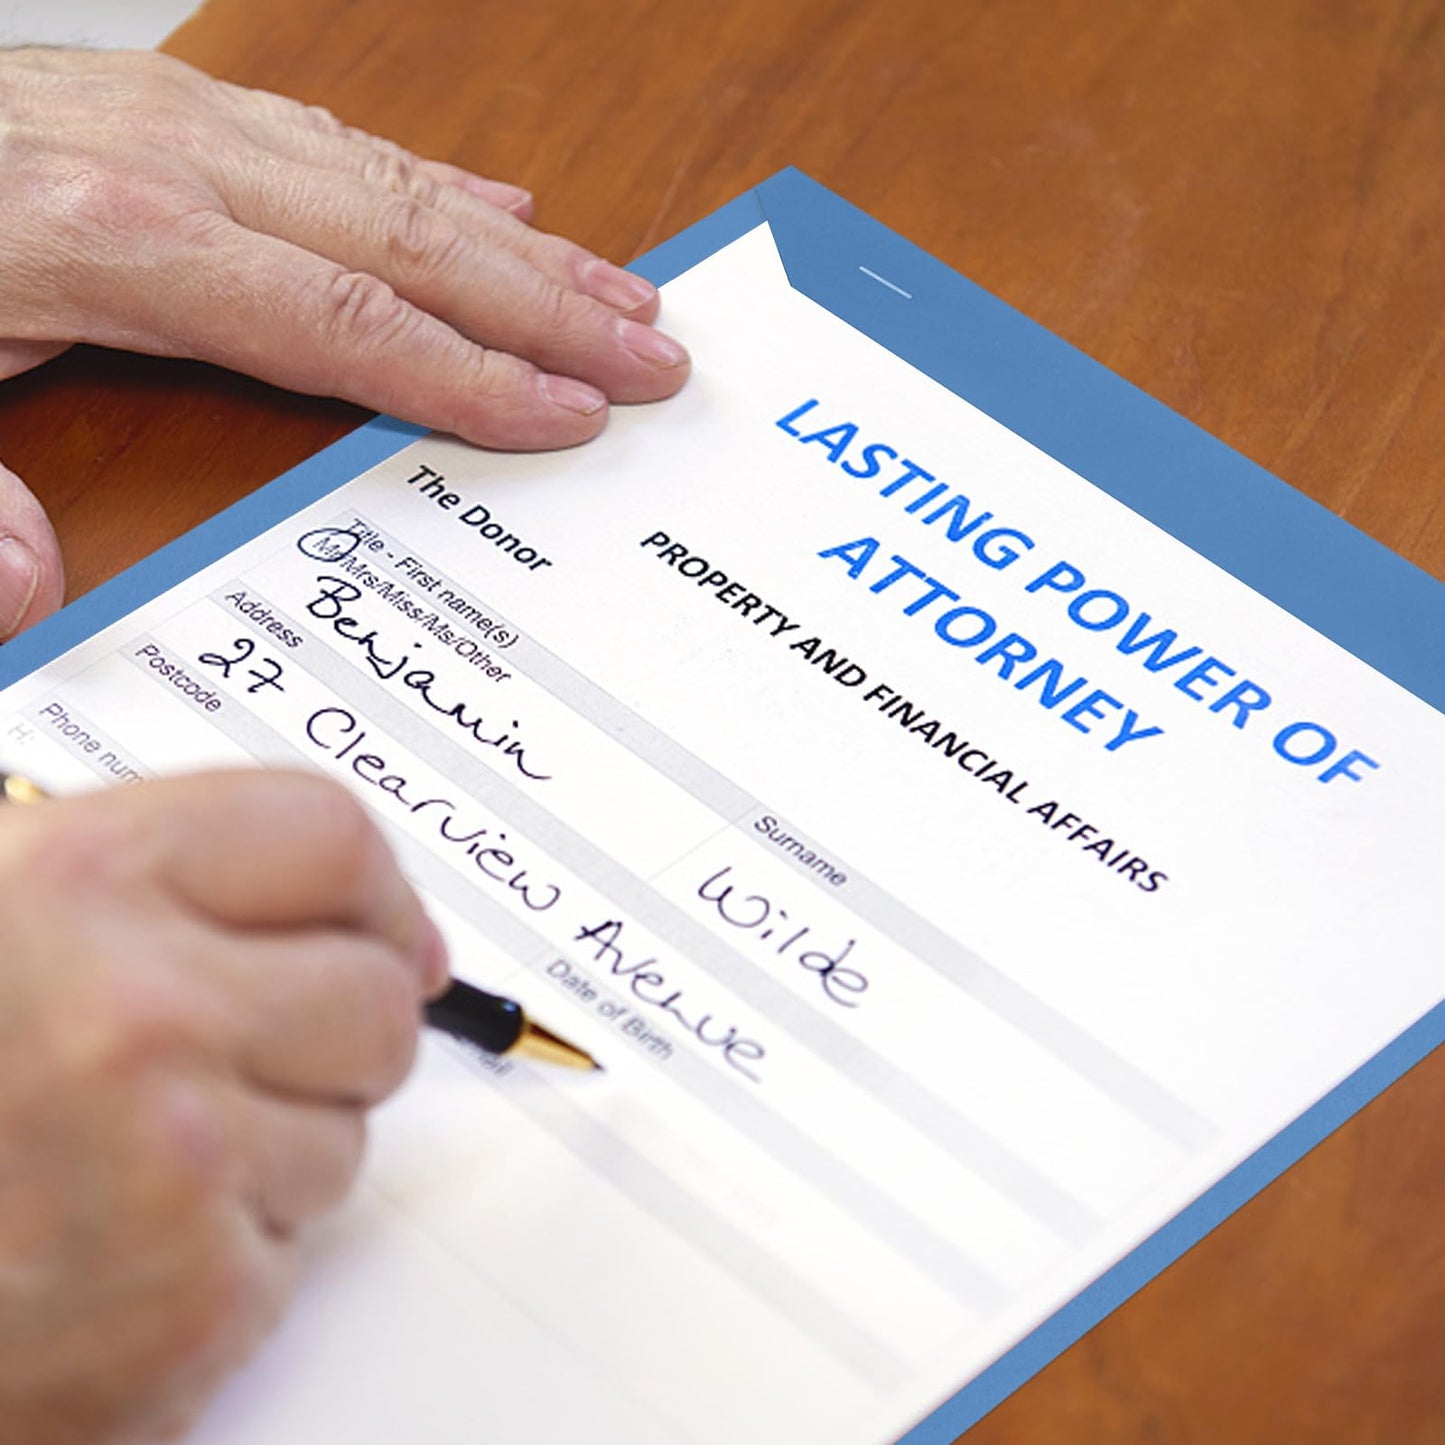 LASTING POWER OF
ATTORNEY
PROPERTY AND FINANCIAL AFFAIRS
The Donor
Title - First name(s)
Surname
Mr/Mrs/Miss/Ms/Other
Benjamin
Wilde
Address
27 Clearview Avenue
Postcode
Date of Birth
Phone num
H: